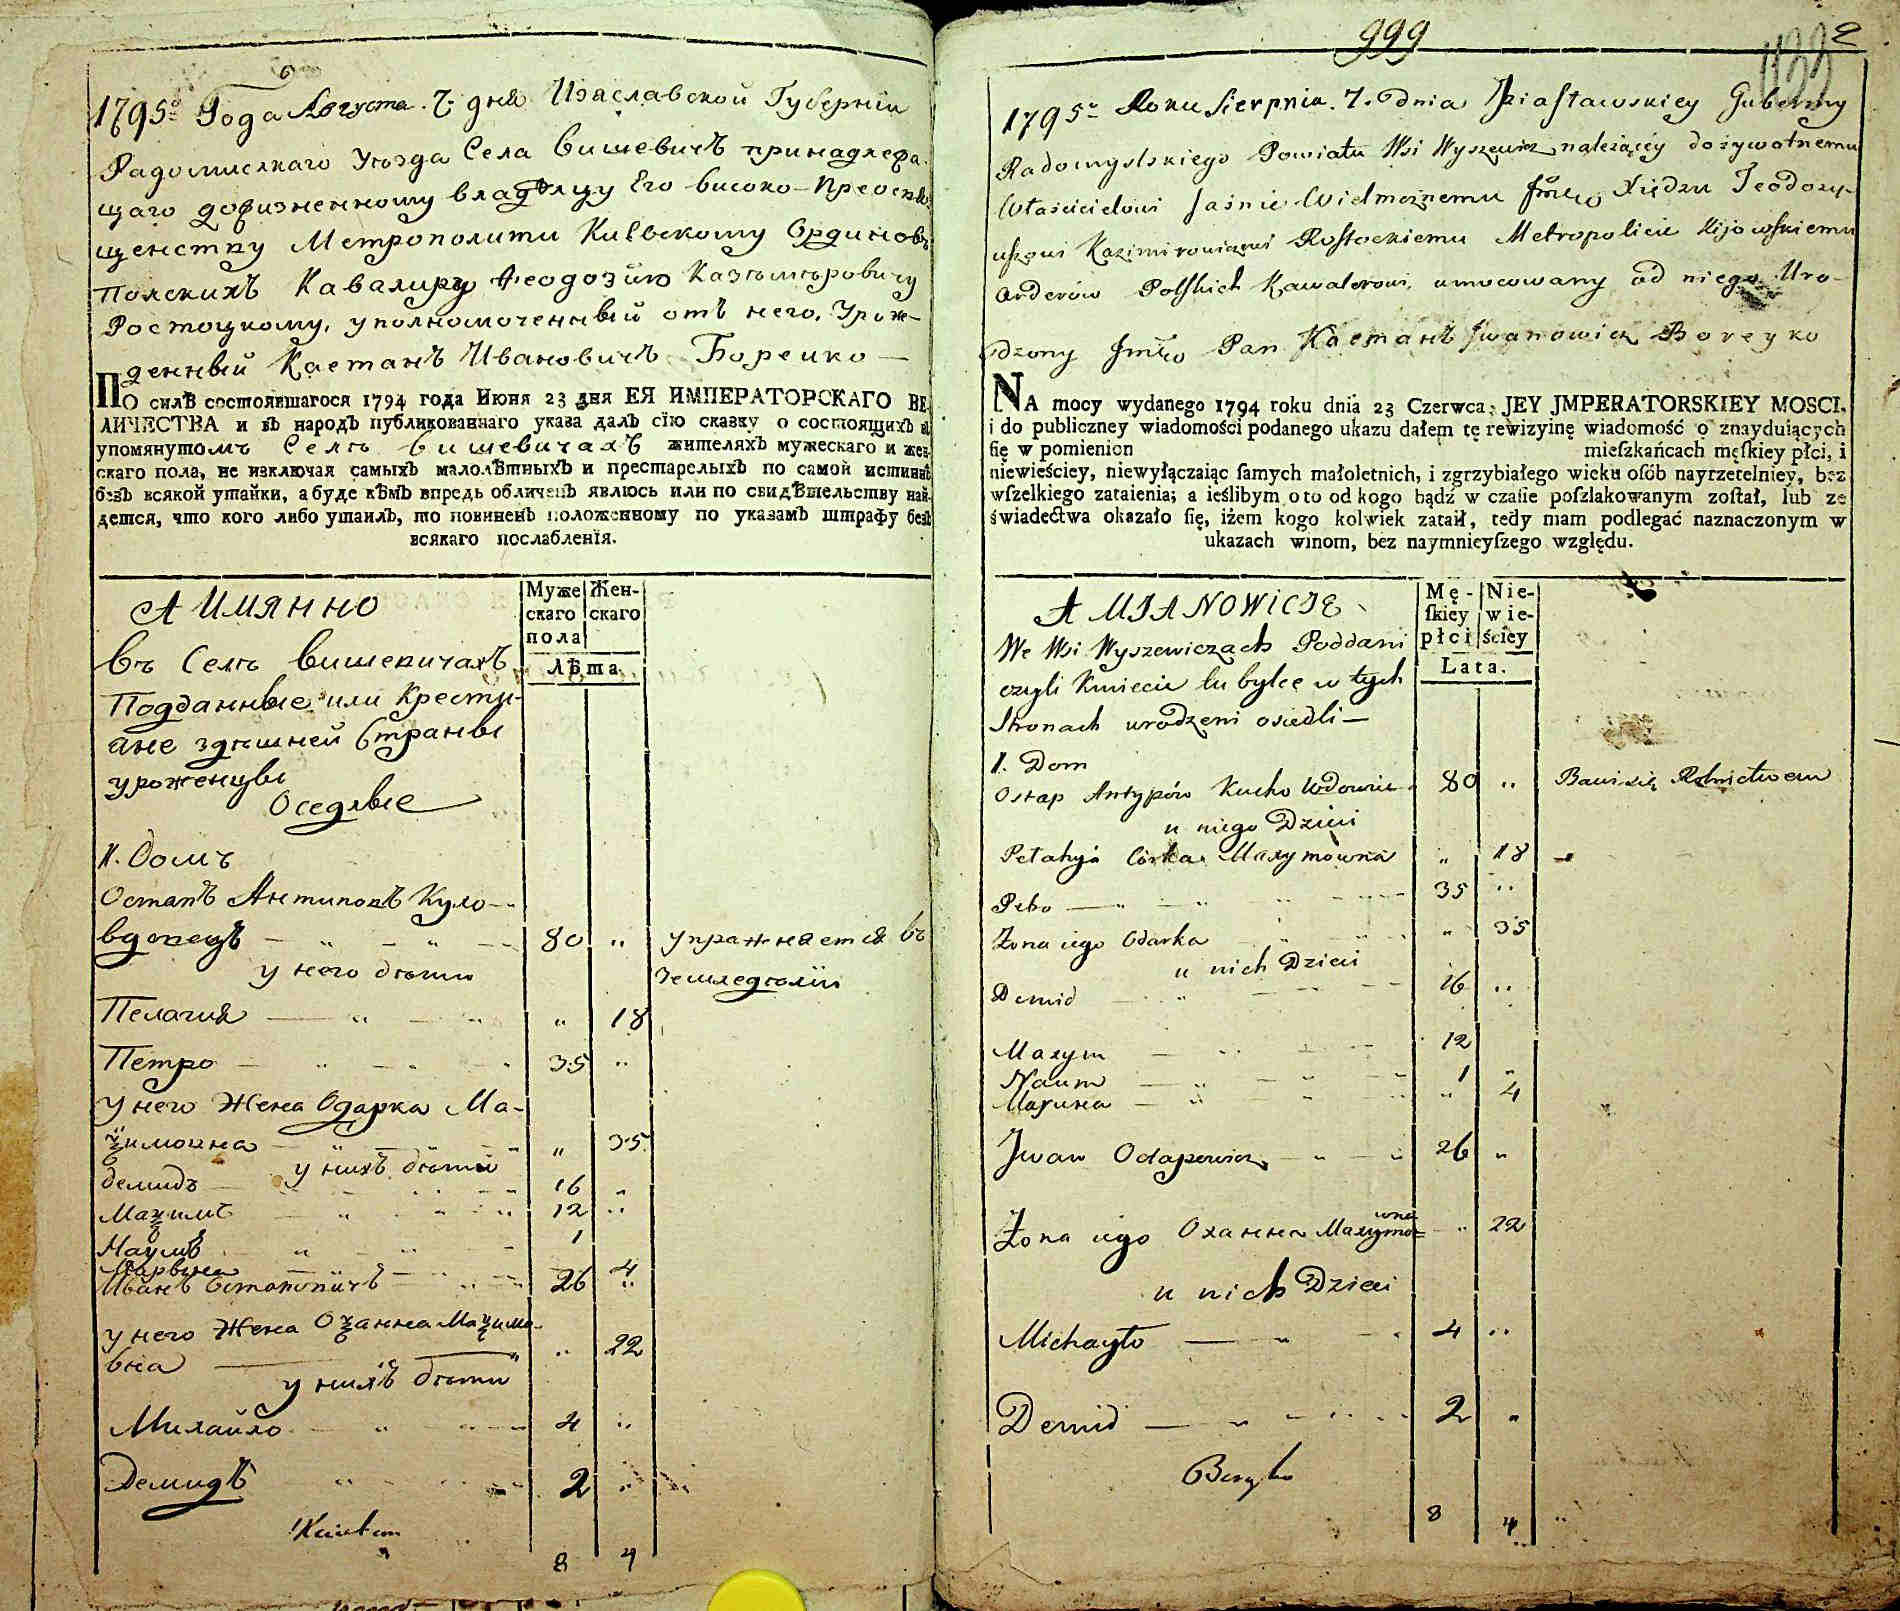 1795го Года Августа 7 дня Изяславской Губернїи
Радомисл̣каго Уѣзда Села Вишевичъ принадлежа-
щаго дожизненному владѣлцу Его Високо-Преосвя-
щенству Митрополити Киевскому Ординовъ
Полскихъ Кавалиру Феодозїю Казъимѣровичу
Ростоцкому, уполномоченный отъ него, Урож-
денный Каетанъ Ивановичъ Борейко —
ПО силѣ состоявшагося 1794 года Июня 23 дня ЕЯ ИМПЕРАТОРСКАГО ВЕ-
ЛИЧЕСТВА и въ народъ публикованнаго указа далъ сїю сказку о состоящихъ въ
упомянутомъ Селѣ Вишевичахъ жителяхъ мужескаго и жен-
скаго пола, не изключая самыхъ малолѣтныхъ и престарелыхъ по самой истиннѣ
безъ всякой утайки, а буде кѣмъ впредь обличенъ явлюсь или по свидѣтельству най-
дется, что кого либо утаилъ, то повиненъ положенному по указамъ штрафу безъ
всякаго послабленїя.
А ИМЯННО
Муже
скаго
пола
Жен-
скаго
Лѣта.
Въ Селѣ Вишевичахъ
Подданные или Крестья-
ане здѣшней Страны
уроженцы
Оседлые
1. Домъ
Остапъ Антиповъ Кухо
вдовецъ — „ — „ — 80 „ упражняется въ
земледѣлїи
у него дѣти
Пелагия — „ — „ „ 18
Петро — „ — „ 35 „
у него Жена Одарка Ма-
ѯимовна „ 35
у нихъ дѣти
Демидъ 16 „
Маѯимъ 12 „
Наумъ 1
Марвина 4
Иванъ Остаповичъ 26 „
у него Жена Оѯанна Маѯимо-
вна „ 22
у нихъ дѣти
Михайло 4 „
Демидъ 2 „
8 4
999
2
1795o Roku Sierpnia 7. dnia Iziasławskiey Guberny
Radomyslskiego Powiatu Wsi Wyszewicz należącey dożywotnemu
Właścicielowi Jaśnie Wielmożnemu Jmć Xiędzu Teodozy-
uszowi Kazimirowiczowi Rostockiemu Metropolicie Kijowskiemu
Orderów Polskich Kawalerowi, umocowany od niego Uro-
dzony Jmć Pan Каетанъ Jwanowicz Boreyko
NA mocy wydanego 1794 roku dnia 23 Czerwca, JEY JMPERATORSKIEY MOSCI,
i do publiczney wiadomości podanego ukazu dałem tę rewizyinę wiadomość o znayduiących
ſię w pomienion mieſzkańcach męſkiey płci, i
niewieściey, niewyłączaiąc ſamych małoletnich, i zgrzybiałego wieku oſób nayrzetelniey, bez
wſzelkiego zataienia; a ieślibym o to od kogo bądź w czaſie poſzlakowanym zoſtał, lub ze
świadectwa okazało ſię, iżem kogo kolwiek zataił, tedy mam podlegać naznaczonym w
ukazach winom, bez naymnieyſzego względu.
A MIANOWICIE
Mę-
ſkiey
płci
Nie-
wie-
ściey
Lata.
We Wsi Wyszewiczach Poddani
czyli Kmiecie tu bylce w tych
Stronach urodzeni osiedli —
1. Dom
Ostap Antypów Kucho Wdowiec 80 „ Bawi się Rolnictwem
u niego Dzieci
Pelahyja Córka Maxymówna „ 18
Petro — „ — „ 35 „
Żona iego Odarka „ 35
u nich Dzieci
Demid 16 „
Maxym 12
Naum 1 „
Марина „ 4
Jwan Ostapowicz — „ — „ 26 „
Żona iego Оханна Maxymo=
wna „ 22
u nich Dzieci
Michayło — „ 4 „
Demid — „ 2 „
8 4